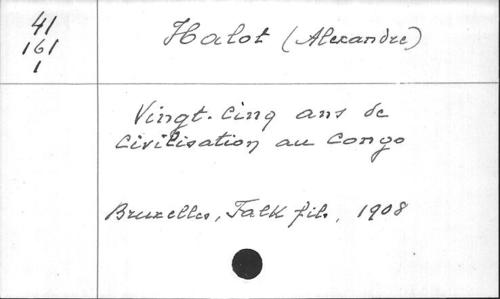 41
161
1
Halot (Alexandre)
Vingt-cinq ans de
civilisation au Congo
Bruxelles, Falk fils, 1908